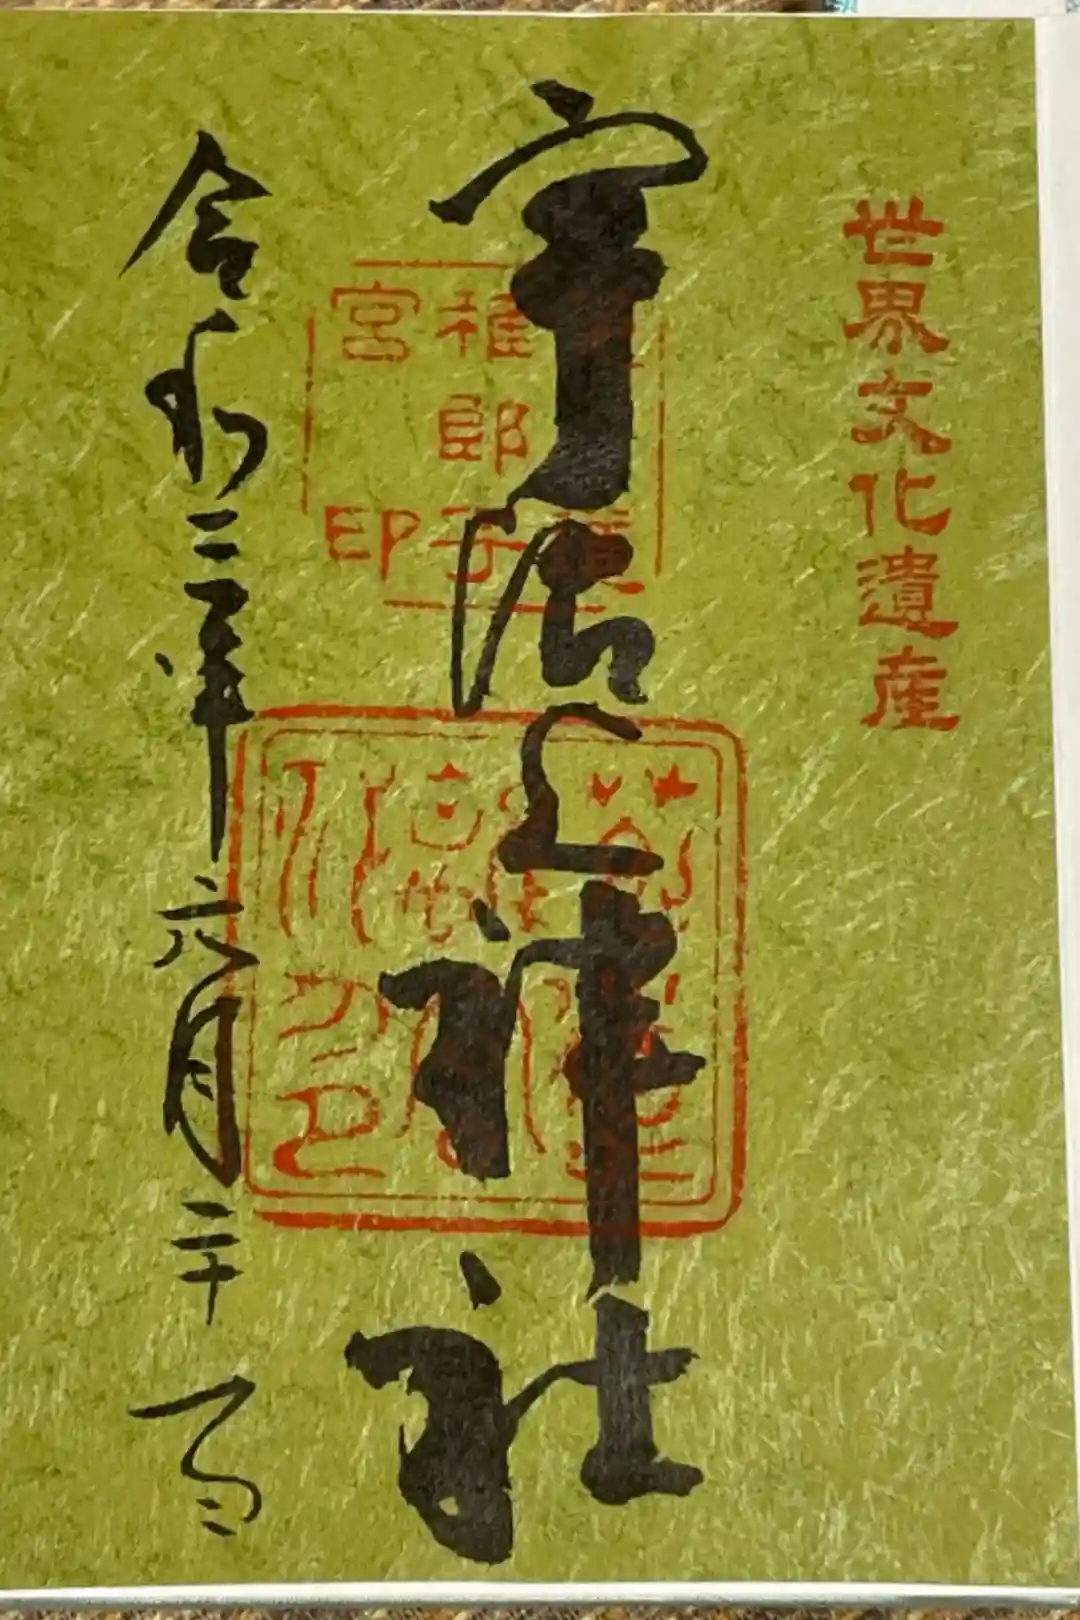 世界文化遺産
宇治上神社
稚郎子
宮印
令和二年六月二十日